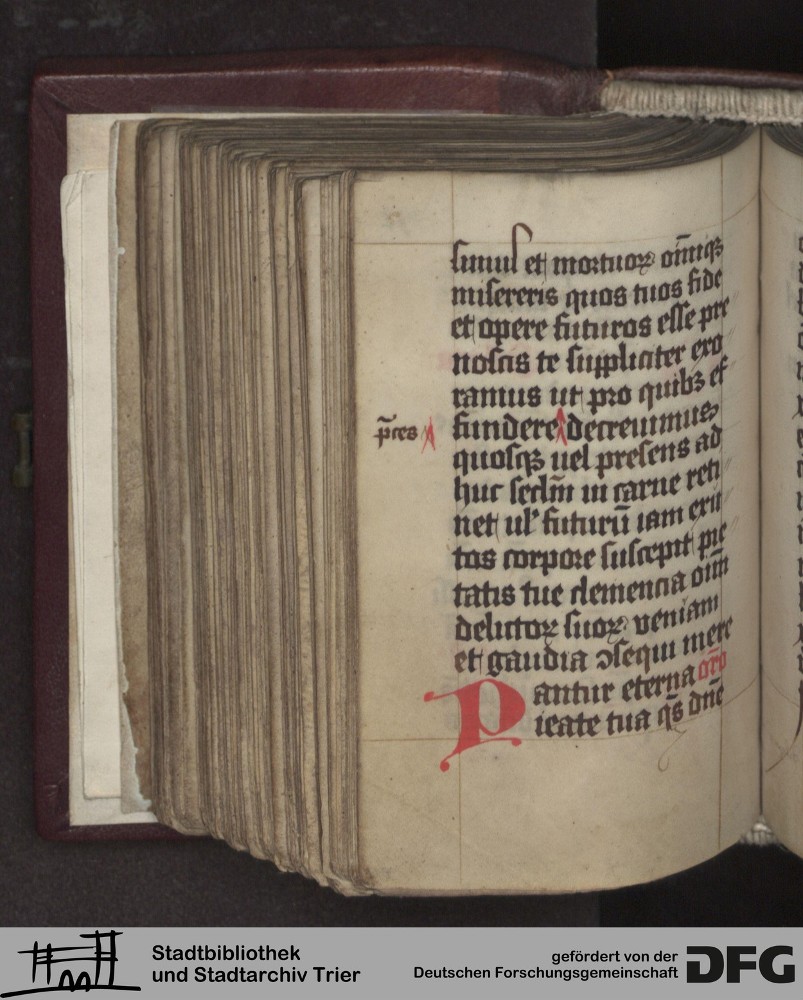 simul et mortuoꝝ om̅iqꝫ
misereris quos tuos fide
et opere futuros esse pre
noscis te suppliciter exo
ramus ut pro quibꝫ ef
p̅ces
fundere decreuimus
quosqꝫ uel presens ad
huc sec̅lm in carne reti
net ul' futuru̅ iam exu
tos corpore suscepit pie
tatis tue clemencia om̅
delictoꝝ suoꝝ veniam
et gaudia ɔsequi mere
antur eterna or̅o
Pieate tua qs̅ dn̅e
Stadtbibliothek
und Stadtarchiv Trier
gefördert von der
Deutschen Forschungsgemeinschaft
DFG